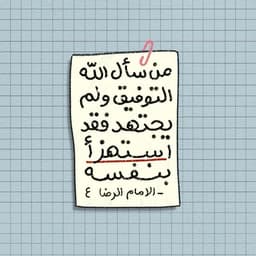 من سأل الله
التوفيق ولم
يجتهد فقد
استهزأ
بنفسه
- الامام الرضا ٤